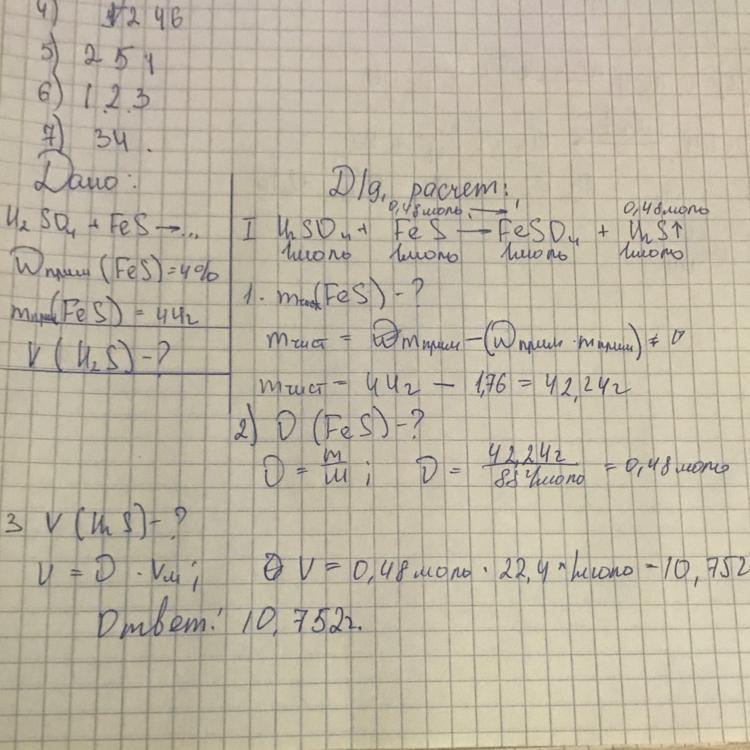 4) 1 2 4 6
5) 2 5 1
6) 1 2 3
7) 3 4 .
Дано:
H₂SO₄ + FeS → ...
W прим (FeS) = 4%
m прим (FeS) = 44г
V (H₂S) - ?
D/g, расчет:
0,48моль 0,48моль
I H₂SO₄ + FeS → FeSO₄ + H₂S↑
1моль 1моль 1моль 1моль
1. m чист (FeS) - ?
m чист = m прим - (W прим · m прим)
m чист = 44г - 1,76 = 42,24г
2) υ (FeS) - ?
υ = m/M ; υ = 42,24г / 88г/моль = 0,48моль
3 V (H₂S) - ?
V = υ · Vм; V = 0,48моль · 22,4 л/моль = 10,752
Ответ: 10,752г.